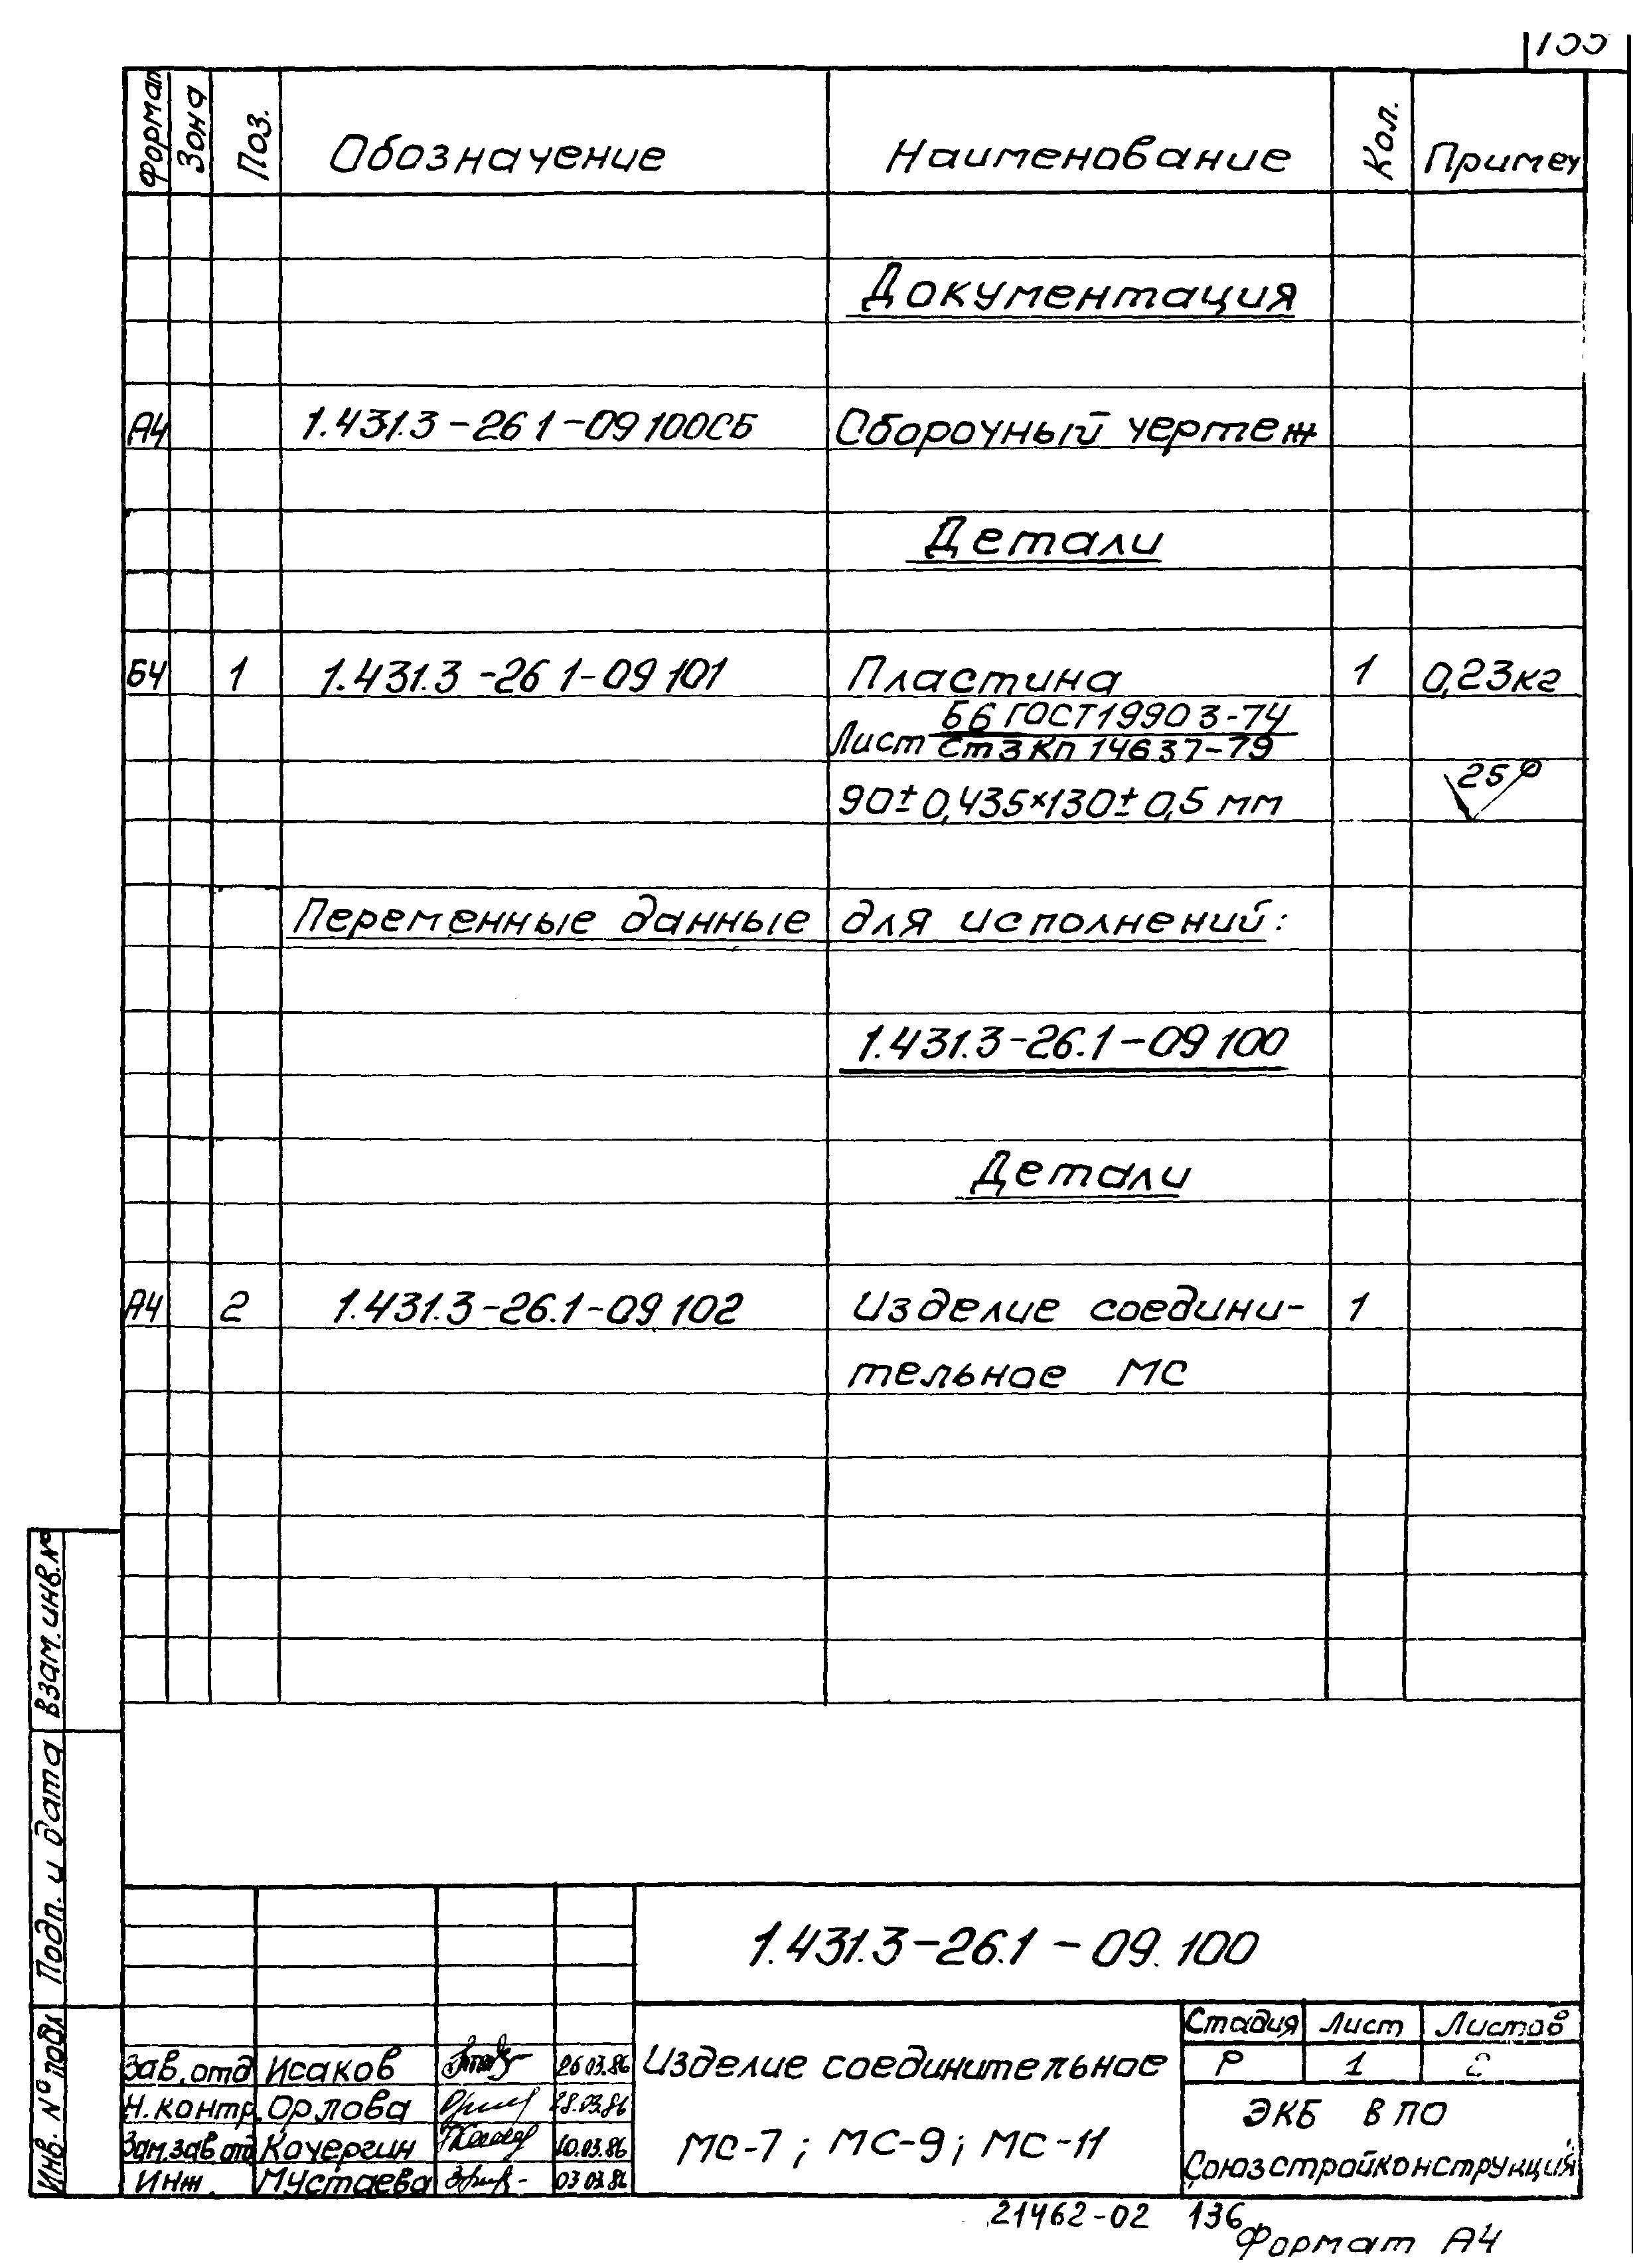 Формат Зона Поз. Обозначение Наименование Кол. Примеч
Документация
А4 1.431.3-26 1-09 100СБ Сборочный чертеж
Детали
Б4 1 1.431.3-26 1-09 101 Пластина 1 0,23кг
Б6 ГОСТ19903-74
Лист Ст3Кп 14637-79
90±0,435×130±0,5 мм 25
Переменные данные для исполнений:
1.431.3-26.1-09 100
Детали
А4 2 1.431.3-26.1-09 102 Изделие соедини- 1
тельное МС
Взам.инв.№
Подп. и дата
Инв. № подл
1.431.3-26.1-09.100
Стадия Лист Листов
Зав.отд Исаков 26.03.86 Изделие соединительное Р 1 2
Н.контр. Орлова 28.03.86
ЭКБ ВПО
Зам.зав.отд Кочергин 10.03.86 МС-7; МС-9; МС-11
Союзстройконструкция
Инж. Мустаева 03 03.86
21462-02 136
Формат А4